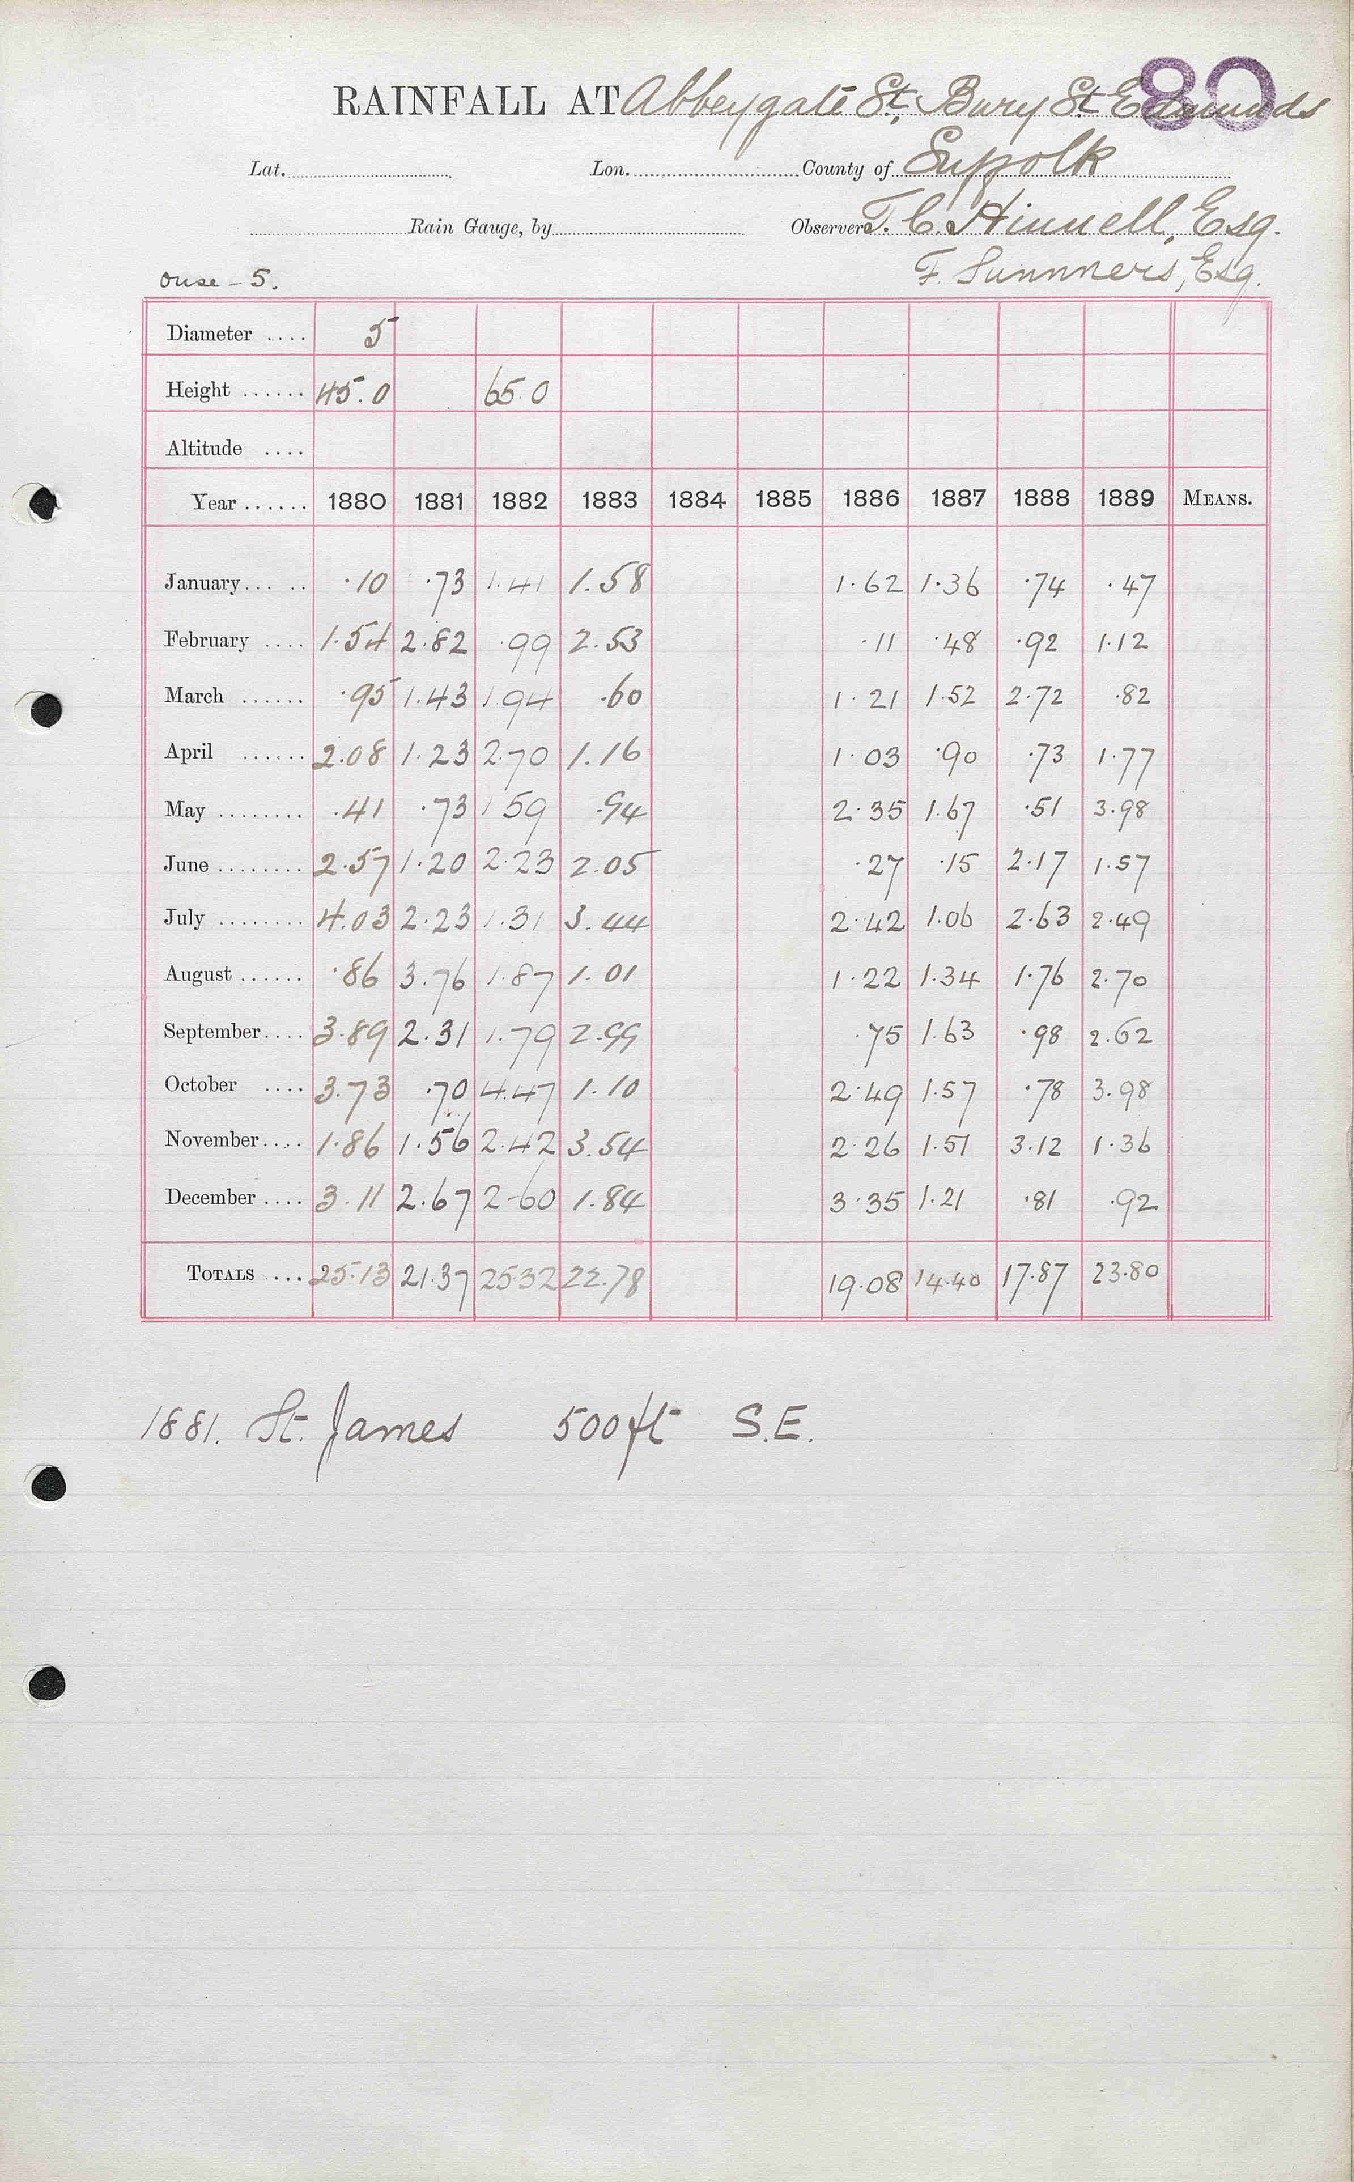 80
RAINFALL AT Abbeygate St, Bury St Edmunds
Lat. Lon. County of Suffolk
Rain Gauge, by Observer T. C. Hinnell, Esq.
F. Sunnners, Esq.
Ouse - 5.
Diameter .... 5
Height ...... 45.0 65.0
Altitude ....
Year ...... 1880 1881 1882 1883 1884 1885 1886 1887 1888 1889 MEANS.
January ... .. .10 .73 1.41 1.58 1.62 1.36 .74 .47
February .... 1.54 2.82 .99 2.53 .11 .48 .92 1.12
March ...... .95 1.43 1.94 .60 1.21 1.52 2.72 .82
April ...... 2.08 1.23 2.70 1.16 1.03 .90 .73 1.77
May ........ .41 .73 1 59 .94 2.35 1.67 .51 3.98
June ........ 2.57 1.20 2.23 2.05 .27 .15 2.17 1.57
July ........ 4.03 2.23 1.31 3.44 2.42 1.06 2.63 2.49
August ...... .86 3.76 1.87 1.01 1.22 1.34 1.76 2.70
September .... 3.89 2.31 1.79 2.99 .75 1.63 .98 2.62
October .... 3.73 .70 4.47 1.10 2.49 1.57 .78 3.98
November .... 1.86 1.56 2.42 3.54 2.26 1.51 3.12 1.36
December .... 3.11 2.67 2.60 1.84 3.35 1.21 .81 .92
TOTALS ... 25.13 21.37 25.32 22.78 19.08 14.40 17.87 23.80
1881. St. James 500 ft S.E.